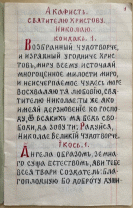 Акафистъ
святителю христову
Николаю.
Кондакъ. 1.
Возбранный чудотворче,
и изрядный угодниче хрис-
товъ, миру всему источаяй
многоцѣнное милости миро,
и неисчерпаемое чудесъ море
восхваляю тя любовiю, свя-
тителю Николае: ты же яко
имѣяй дерзновенiе ко госпо-
ду, ѿ всякихъ мя бѣдъ сво-
боди, да зову ти: Радуйся,
Николае великiй чудотворче.
Iкосъ. 1.
Ангела образомъ, земна-
го суща естествомъ, яви тебе
всея твари создатель: бла-
гоплодную бо доброту души